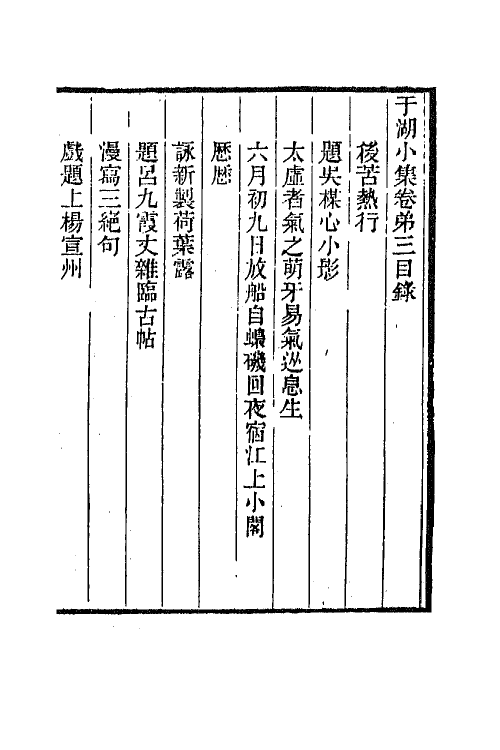 于湖小集卷弟三目錄
後苦熱行
題吳楳心小影
太虛者氣之萌牙易氣逊息生
六月初九日放船自蟂磯回夜宿江上小閣
歷歷
詠新製荷葉露
題呂九霞丈雜臨古帖
漫寫三絕句
戲題上楊宣州